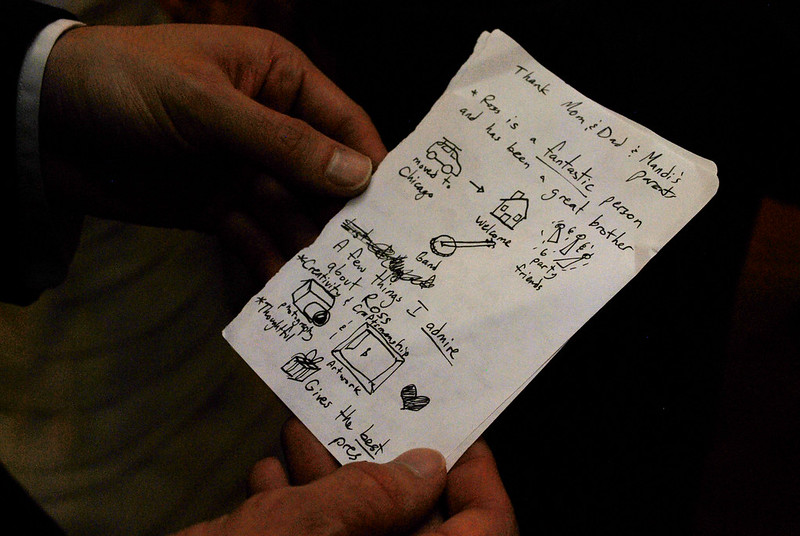 Thank Mom & Dad & Mandi's
parents
* Ross is a fantastic person
and has been a great brother
moved to
Chicago
Welcome
Band
party
friends
A few things I admire
about Ross
*Creativity &
Craftsmanship
photography
Artwork
*Thoughtful
Gives the best
pres